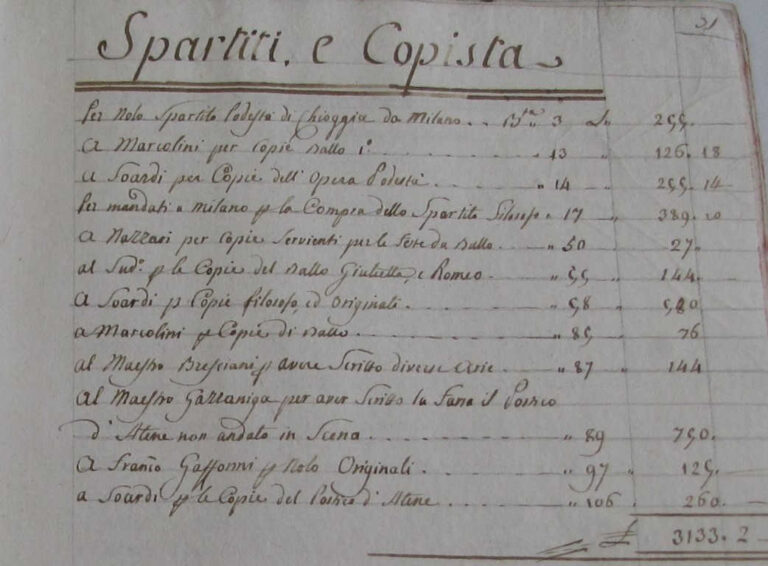 31
Spartiti, e Copista
Per Nolo Spartito Podestà di Chioggia da Milano . . Bta " 3 L " 255.
A Marcolini per copie Ballo 1º " 13 " 126. 18
A Soardi per Copie dell'Opera Podestà " 14 " 255. 14
Per mandati a Milano p la Compra dello Spartito Filosofo " 17 " 389. 10
A Nazzari per copie servienti per le feste da Ballo " 50 27
al Sudº p le Copie del Ballo Giulietta, e Romeo " 55 " 144.
A Soardi p Copie filosofo, ed Originali " 58 " 580
a Marcolini p Copie di Ballo " 85 " 76
al Maestro Bresciani p avere Scritto diverse Arie " 87 " 144
Al Maestro Gazzaniga per aver Scritto la Farsa il Postico
d'Atene non andato in Scena " 89 750.
A Franco Gafforini p Nolo Originali " 97 " 125.
a Soardi p le Copie del Postico d'Atene " 106 260.
£ 3133. 2